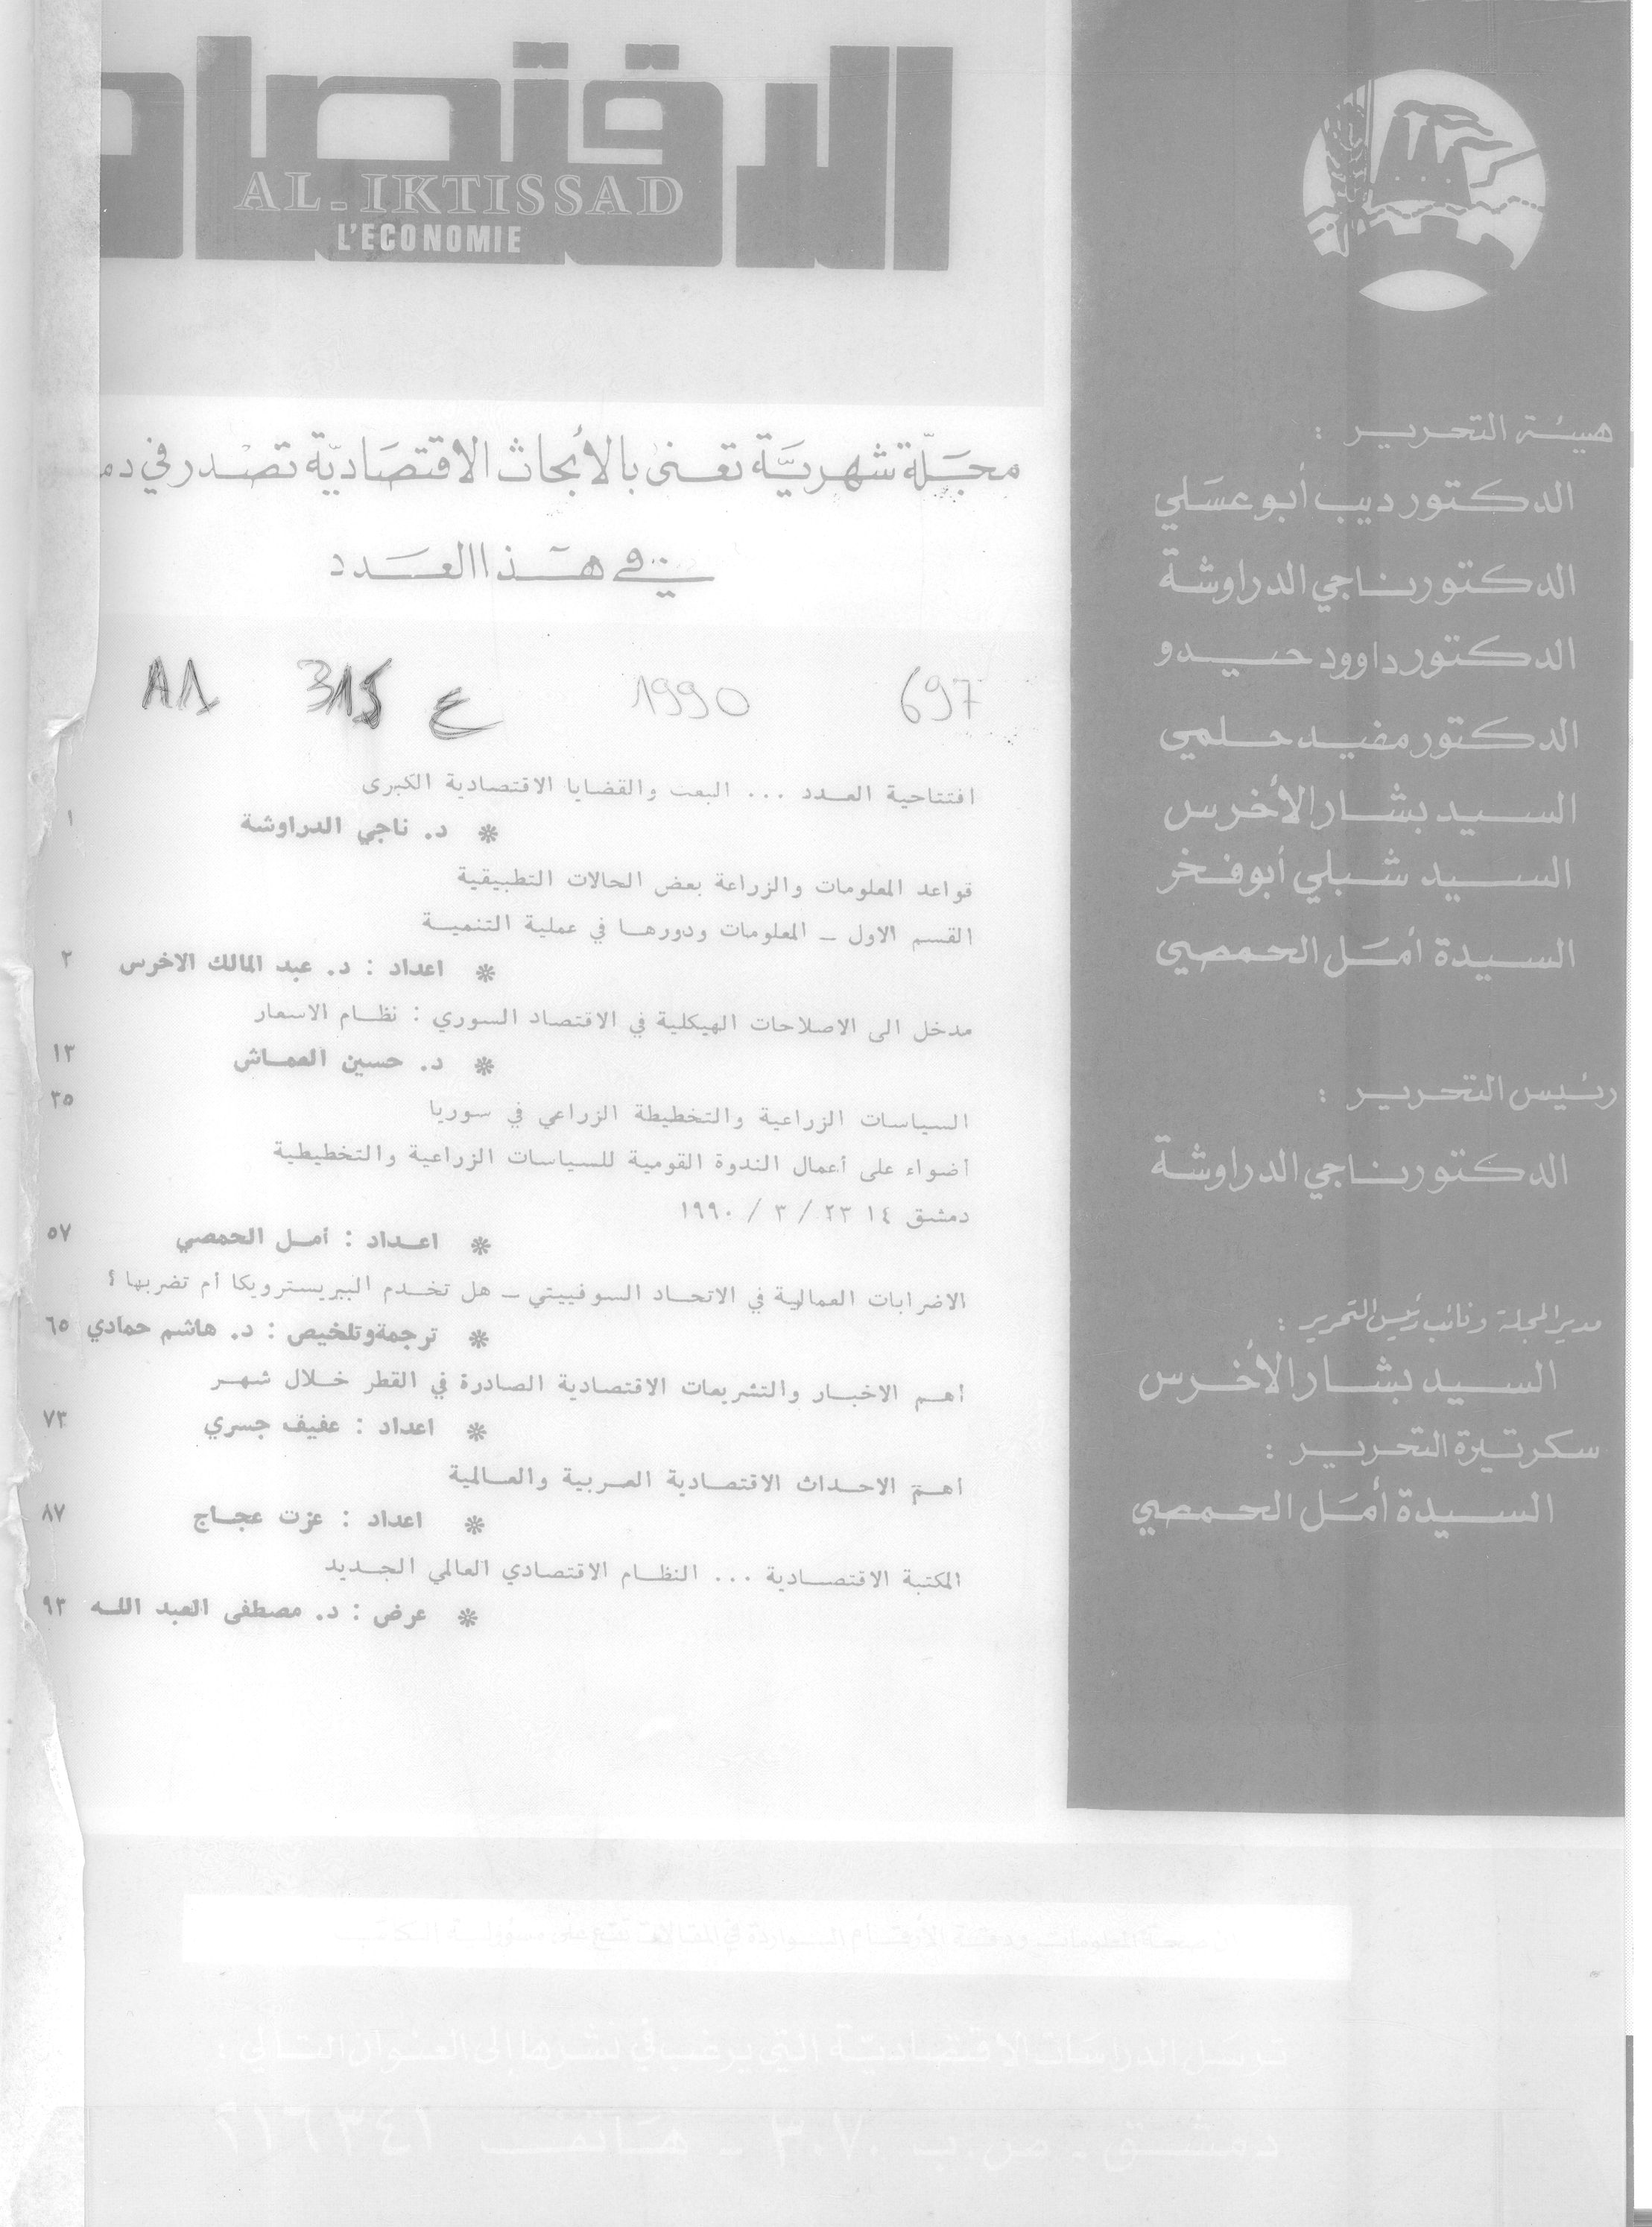 الاقتصاد
AL-IKTISSAD
L'ECONOMIE
مجلة شهرية تعنى بالأبحاث الاقتصادية تصدر في دم
في هذا العدد
697 1990 ع 315 A1
افتتاحية العدد ... البعث والقضايا الاقتصادية الكبرى
* د. ناجي الدراوشة ١
قواعد المعلومات والزراعة بعض الحالات التطبيقية
القسم الاول - المعلومات ودورها في عملية التنمية
* اعداد : د. عبد المالك الاخرس ٢
مدخل الى الاصلاحات الهيكلية في الاقتصاد السوري : نظام الاسعار
* د. حسين العماش ١٣
السياسات الزراعية والتخطيطة الزراعي في سوريا ٣٥
أضواء على أعمال الندوة القومية للسياسات الزراعية والتخطيطية
دمشق ١٤ ٢٣ / ٣ / ١٩٩٠
* اعداد : أمل الحمصي ٥٧
الاضرابات العمالية في الاتحاد السوفييتي - هل تخدم البيريسترويكا أم تضربها ؟
* ترجمة وتلخيص : د. هاشم حمادي ٦٥
أهم الاخبار والتشريعات الاقتصادية الصادرة في القطر خلال شهر
* اعداد : عفيف جسري ٧٣
أهم الاحداث الاقتصادية العربية والعالمية
* اعداد : عزت عجاج ٨٧
المكتبة الاقتصادية ... النظام الاقتصادي العالمي الجديد
* عرض : د. مصطفى العبد الله ٩٣
هيئة التحرير :
الدكتور ديب أبو عسلي
الدكتور ناجي الدراوشة
الدكتور داوود حيدو
الدكتور مفيد حلمي
السيد بشار الأخرس
السيد شبلي أبو فخر
السيدة أمل الحمصي
رئيس التحرير :
الدكتور ناجي الدراوشة
مدير المجلة ونائب رئيس التحرير :
السيد بشار الأخرس
سكرتيرة التحرير :
السيدة أمل الحمصي
ان صحة المعلومات ودقة الأرقام الواردة في المقالات تقع على مسؤولية الكاتب
ترسل الدراسات الاقتصادية التي يرغب في نشرها إلى العنوان التالي :
دمشق - ص.ب ٣٠٧٠ - هاتف ٢١٦٣٤١